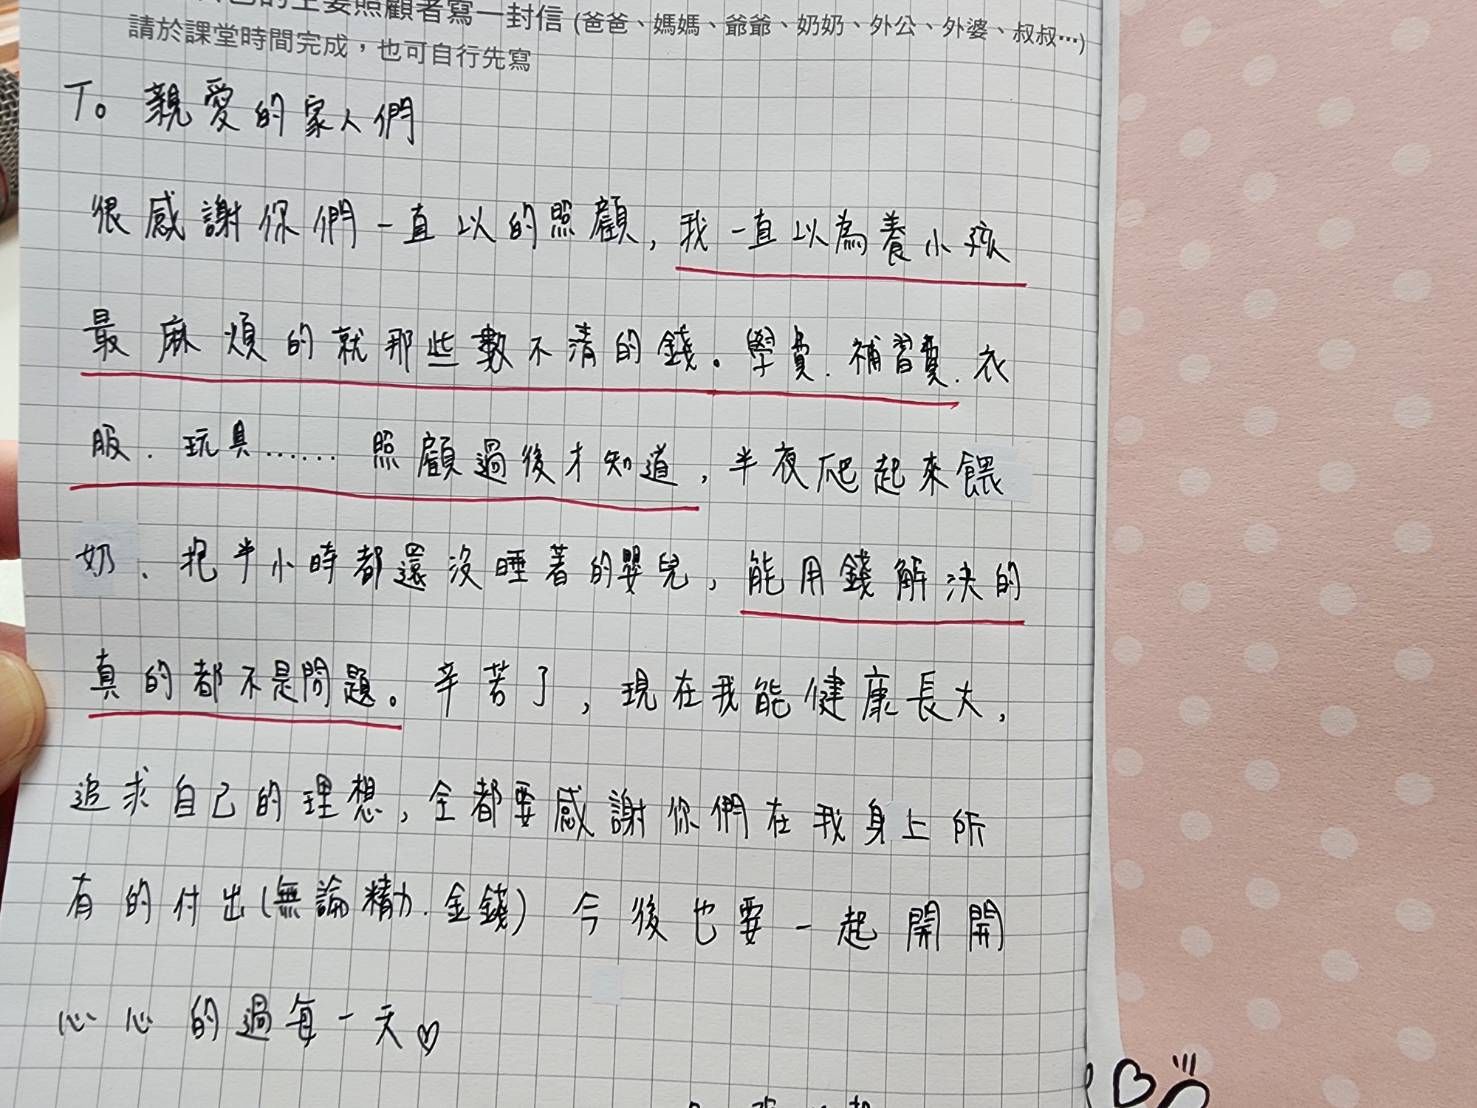 的主要照顧者寫一封信 (爸爸、媽媽、爺爺、奶奶、外公、外婆、叔叔…)
請於課堂時間完成，也可自行先寫
To 親愛的家人們
很感謝你們一直以的照顧，我一直以為養小孩
最麻煩的就那些數不清的錢。學費、補習費、衣
服、玩具…… 照顧過後才知道，半夜爬起來餵
奶、抱半小時都還沒睡著的嬰兒，能用錢解決的
真的都不是問題。辛苦了，現在我能健康長大，
追求自己的理想，全都要感謝你們在我身上所
有的付出(無論精力、金錢) 今後也要一起開開
心心的過每一天♡